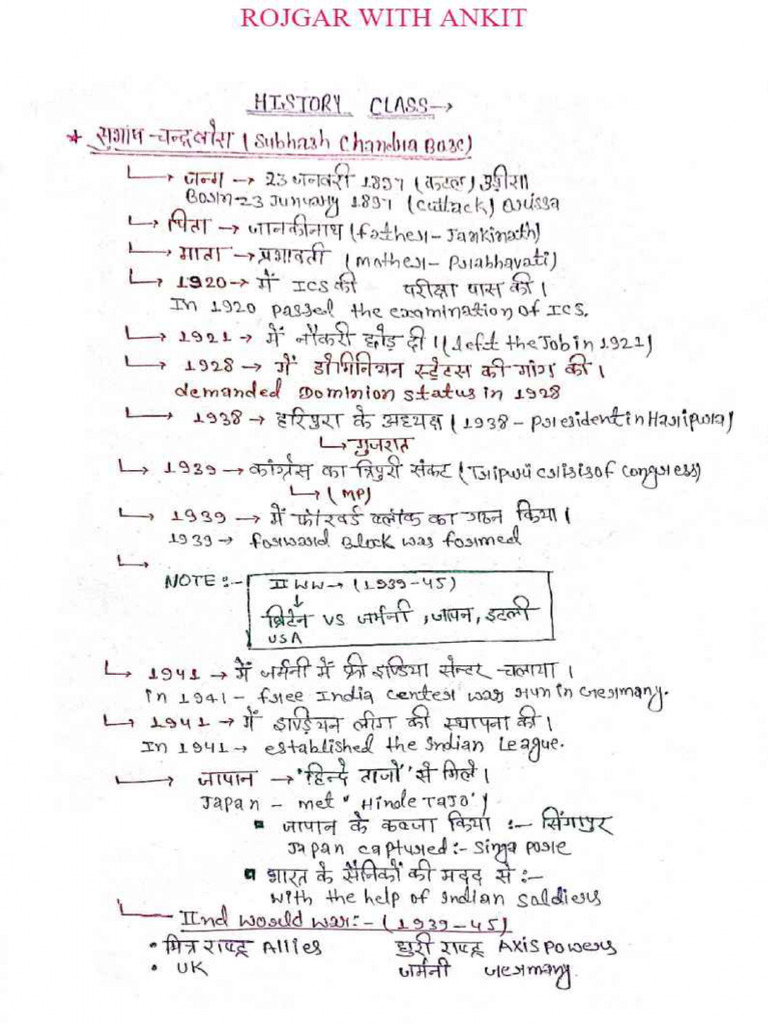 ROJGAR WITH ANKIT
HISTORY CLASS→
* सुभाष चन्द्र बोस (Subhash Chandra Bose)
→ जन्म → 23 जनवरी 1897 (कटक) उड़ीसा
Born-23 January 1897 (Cuttack) Orissa
→ पिता → जानकीनाथ (father- Jankinath)
→ माता → प्रभावती (mother- Prabhavati)
→ 1920→ में ICS की परीक्षा पास की।
In 1920 passed the examination of ICS.
→ 1921 → में नौकरी छोड़ दी। (left the Job in 1921)
→ 1928 → में डोमिनियन स्टेटस की मांग की।
demanded Dominion status in 1928
→ 1938 → हरिपुरा के अध्यक्ष (1938 - President in Haripura)
→ गुजरात
→ 1939 → कांग्रेस का त्रिपुरी संकट (Tripuri crisis of congress)
→ (MP)
→ 1939 → में फॉरवर्ड ब्लॉक का गठन किया।
1939 → forward Block was formed
→
NOTE :- II WW → (1939-45)
↓
ब्रिटेन VS जर्मनी, जापान, इटली
USA
→ 1941 → में जर्मनी में फ्री इण्डिया सेन्टर चलाया।
in 1941 - free India center was run in Germany.
→ 1941 → में इण्डियन लीग की स्थापना की।
In 1941 → established the Indian League.
→ जापान → 'हिन्दे ताजो' से मिले।
Japan - met "Hinde TaJo")
▪ जापान के कब्जा किया :- सिंगापुर
Japan captured :- Singapore
▪ भारत के सैनिकों की मदद से :-
with the help of Indian Soldiers
→ IInd world war:- (1939-45)
• मित्र राष्ट्र Allies धुरी राष्ट्र Axis powers
• UK जर्मनी Germany